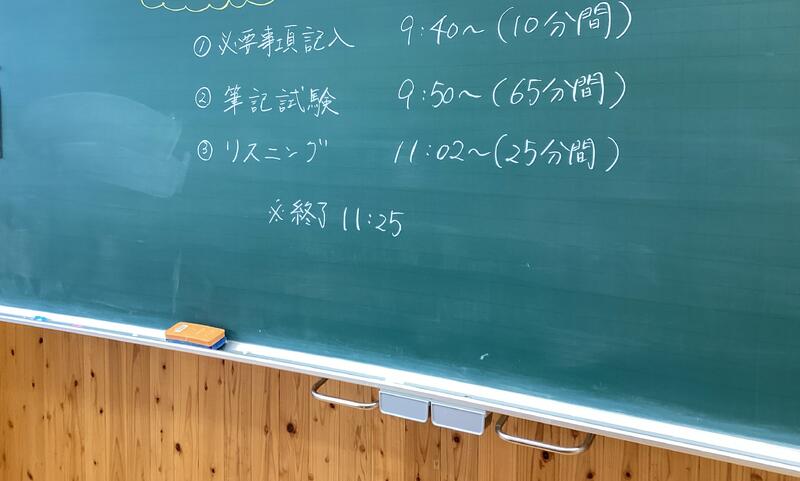 ① 必要事項記入 9:40～(10分間)
② 筆記試験 9:50～(65分間)
③ リスニング 11:02～(25分間)
※終了 11:25